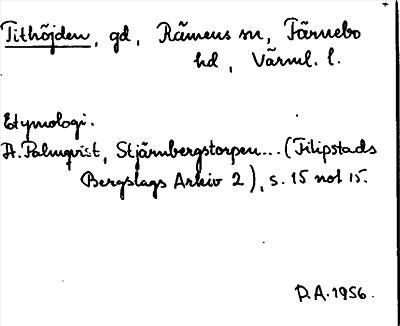 Tithöjden, gd, Rämens sn, Färnebo
hd, Värml. l.
Etymologi.
A. Palmqvist, Stjärnbergstorpen... (Filipstads
Bergslags Arkiv 2), s. 15 not 15.
D.A. 1956.